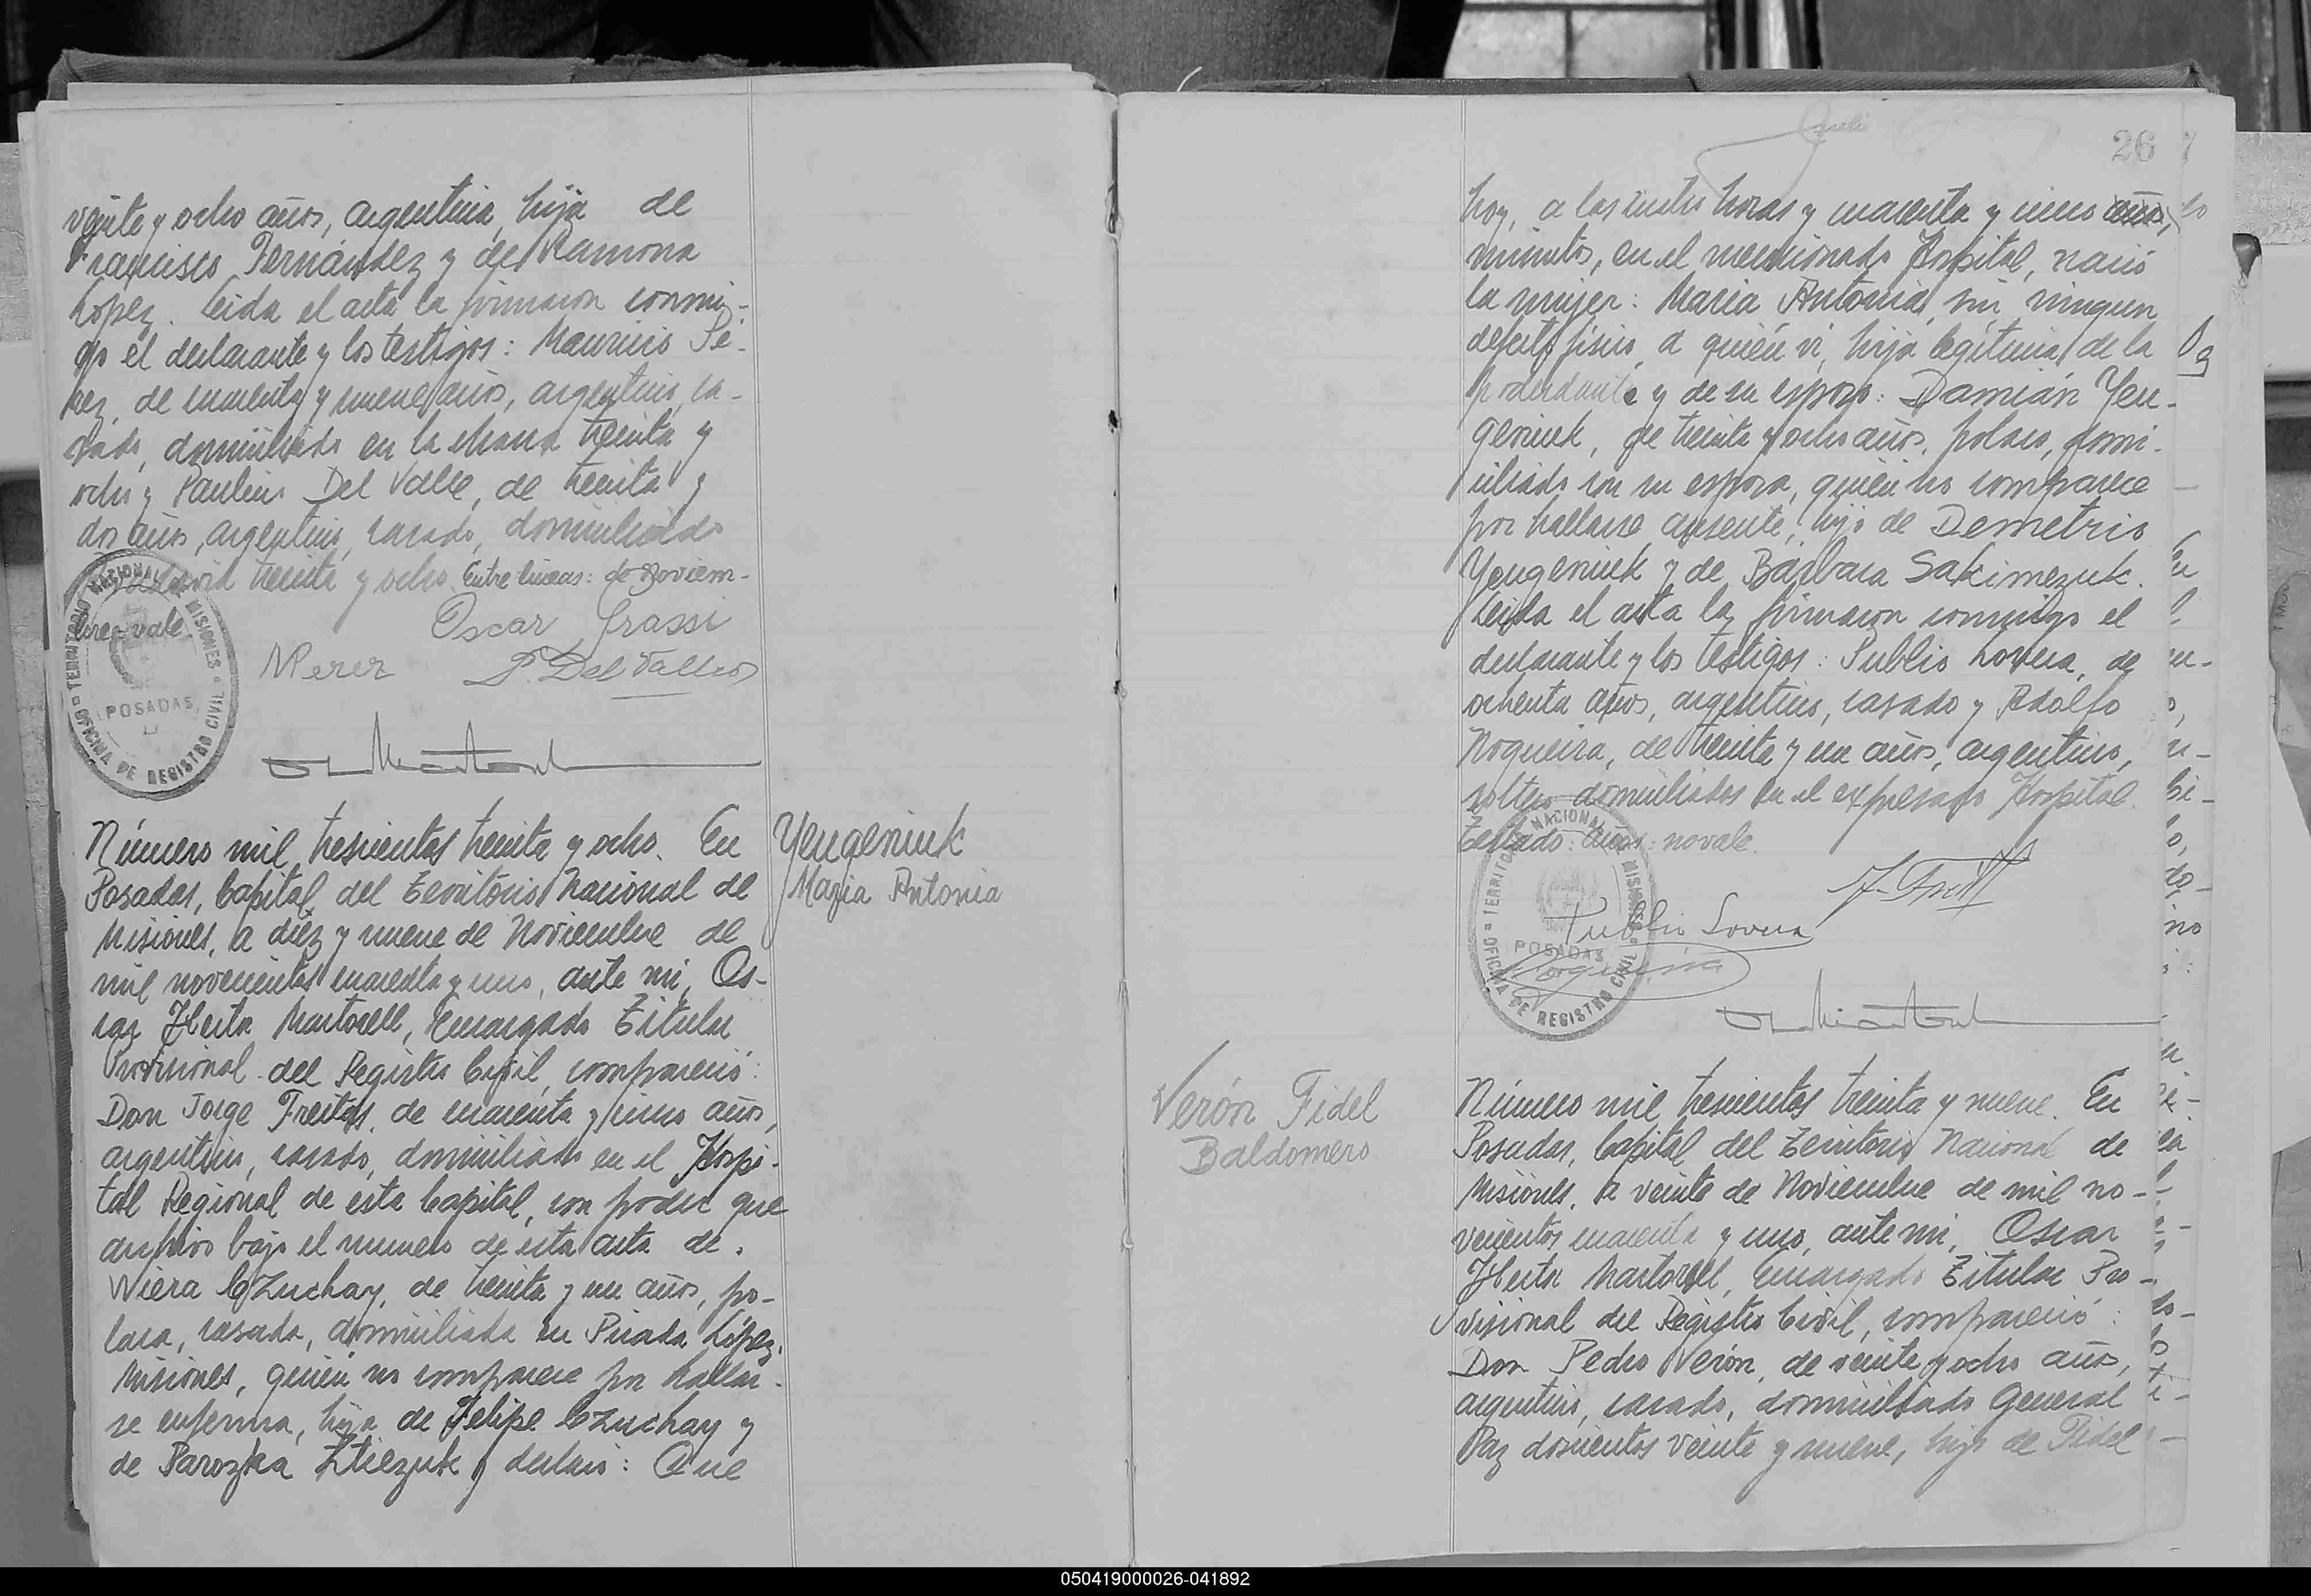 veinte y ocho años, argentina, hija de
Francisco Fernández y de Ramona
López. Leida el acta la firmaron conmi-
go el declarante y los testigos: Mauricio Pé-
rez, de cuarenta y nueve años, argentino, ca-
sado, domiciliado en la chacra treinta y
ocho y Paulino Del Valle, de treinta y
dos años, argentino, casado, domiciliado
treinta y ocho. Entre lineas: de Noviem-
bre-vale
Oscar Grassi
MPerez P. Del Valle
TERRITORIO NACIONAL DE MISIONES
POSADAS
OFICINA DE REGISTRO CIVIL
Número mil trescientos treinta y ocho. En
Posadas, Capital del Territorio Nacional de
Misiones, a diez y nueve de Noviembre de
mil novecientos cuarenta y uno, ante mi, Os-
car Martorell, Encargado Titular
Provisional del Registro Civil, compareció:
Don Jorge Freitas, de cuarenta y cinco años,
argentino, casado, domiciliado en el Hospi-
tal Regional de esta Capital, con poder que
archivo bajo el numero de esta acta de
Wiera Czuchay, de treinta y un años, po-
laca, casada, domiciliada en Picada López,
Misiones, quien no comparece por hallar-
se enferma, hija de Felipe Czuchay y
de Paroska y declaró: Que
Yeugeniuk
Maria Antonia
26
hoy, a las cuatro horas y cuarenta y cinco años,
minutos, en el mencionado Hospital, nació
la mujer: Maria Antonia, sin ningun
defecto fisico, a quién vi, hija legítima de la
poderdante y de su esposo: Damián Yeu-
geniuk, de treinta y ocho años, polaco, domi-
ciliado con su esposa, quién no comparece
por hallarse ausente, hijo de Demetrio
Yeugeniuk y de Bárbara Sakimezuk.
Leida el acta la firmaron conmigo el
declarante y los testigos: Publio Lovera, de
ochenta años, argentino, casado y Adolfo
Nogueira, de treinta y un años, argentino,
soltero domiciliados en el expresado Hospital.
Testado: años: no vale.
J. Freit
Publio Lovera
Nogueira
TERRITORIO NACIONAL DE MISIONES
POSADAS
OFICINA DE REGISTRO CIVIL
Verón Fidel
Baldomero
Número mil trescientos treinta y nueve. En
Posadas, Capital del Territorio Nacional de
Misiones, a veinte de Noviembre de mil no-
vecientos cuarenta y uno, ante mi, Oscar
Martorell, Encargado Titular Pro-
visional del Registro Civil, compareció:
Don Pedro Verón, de veinte y ocho años,
argentino, casado, domiciliado General
Paz doscientos veinte y nueve, hijo de Fidel
050419000026-041892